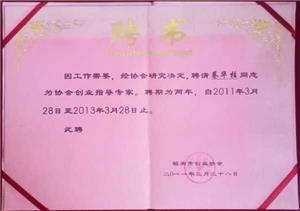 聘书
因工作需要，经协会研究决定，聘请蔡华桂同志
为协会创业指导专家。聘期为两年，自2011年3月
28日至2013年3月28日止。
此聘
市创业协会
二〇一一年三月二十八日